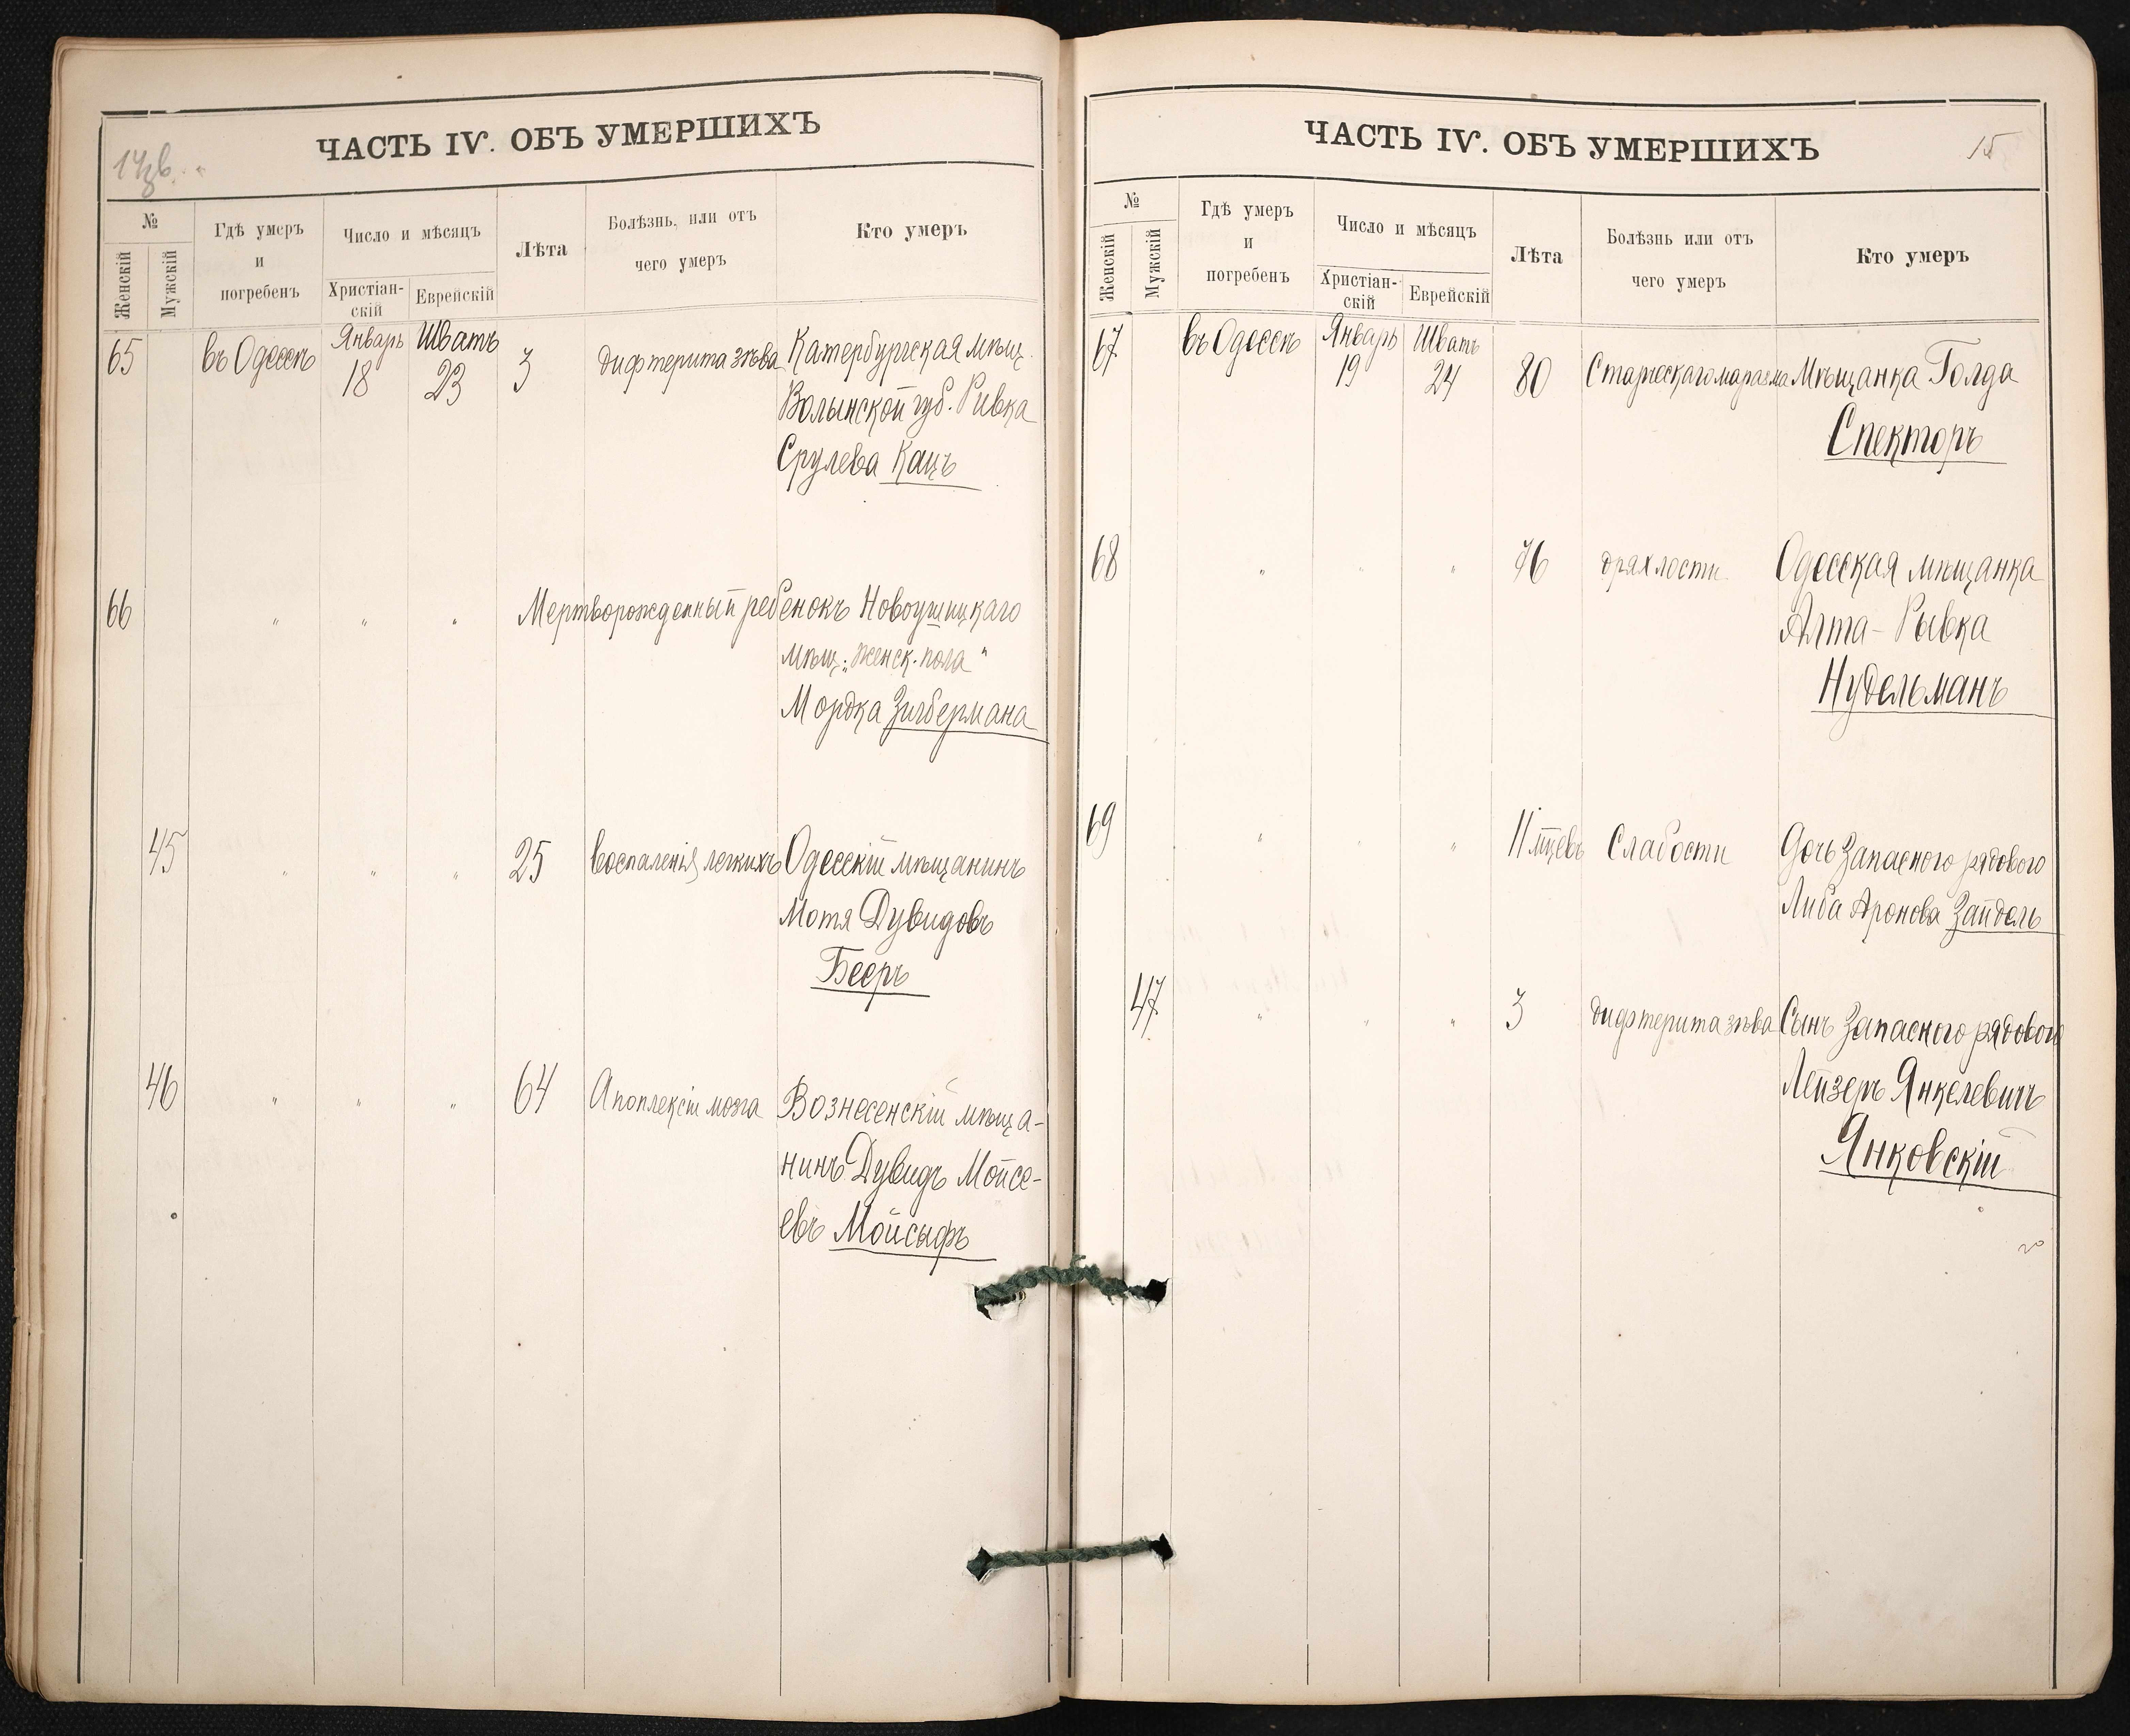 14зв.
ЧАСТЬ IV. ОБЪ УМЕРШИХЪ
№
Женскій
Мужскій
Гдѣ умеръ
и
погребенъ
Число и мѣсяцъ
Христіан-
скій
Еврейскій
Лѣта
Болѣзнь, или отъ
чего умеръ
Кто умеръ
65 въ Одессѣ Январь 18 Шватъ 23 3 дифтерита зѣва Катербургская мѣщ.
Волынской губ. Ривка
Срулева Кацъ
66 " " " Мертворожденный ребенокъ Новоушицкаго
мѣщ. "женск. пола"
Мордка Зигбермана
45 " " " 25 воспаленія легкихъ Одесскій мѣщанинъ
Мотя Дувидовъ
Бееръ
46 " " " 64 Апоплексіи мозга Вознесенскій мѣща-
нинъ Дувидъ Мойсе-
евъ Мойсыфъ
ЧАСТЬ IV. ОБЪ УМЕРШИХЪ
15
№
Женскій
Мужскій
Гдѣ умеръ
и
погребенъ
Число и мѣсяцъ
Христіан-
скій
Еврейскій
Лѣта
Болѣзнь или отъ
чего умеръ
Кто умеръ
67 въ Одессѣ Январь 19 Шватъ 24 80 Старческаго маразма Мѣщанка Голда
Спекторъ
68 " " " 76 дряхлости Одесская мѣщанка
Алта-Рывка
Нудельманъ
69 " " " 11 мцевъ Слабости Дочь Запасного рядового
Либа Аронова Зайдель
47 " " " 3 дифтерита зѣва Сынъ Запасного рядового
Лейзеръ Янкелевичъ
Янковскій